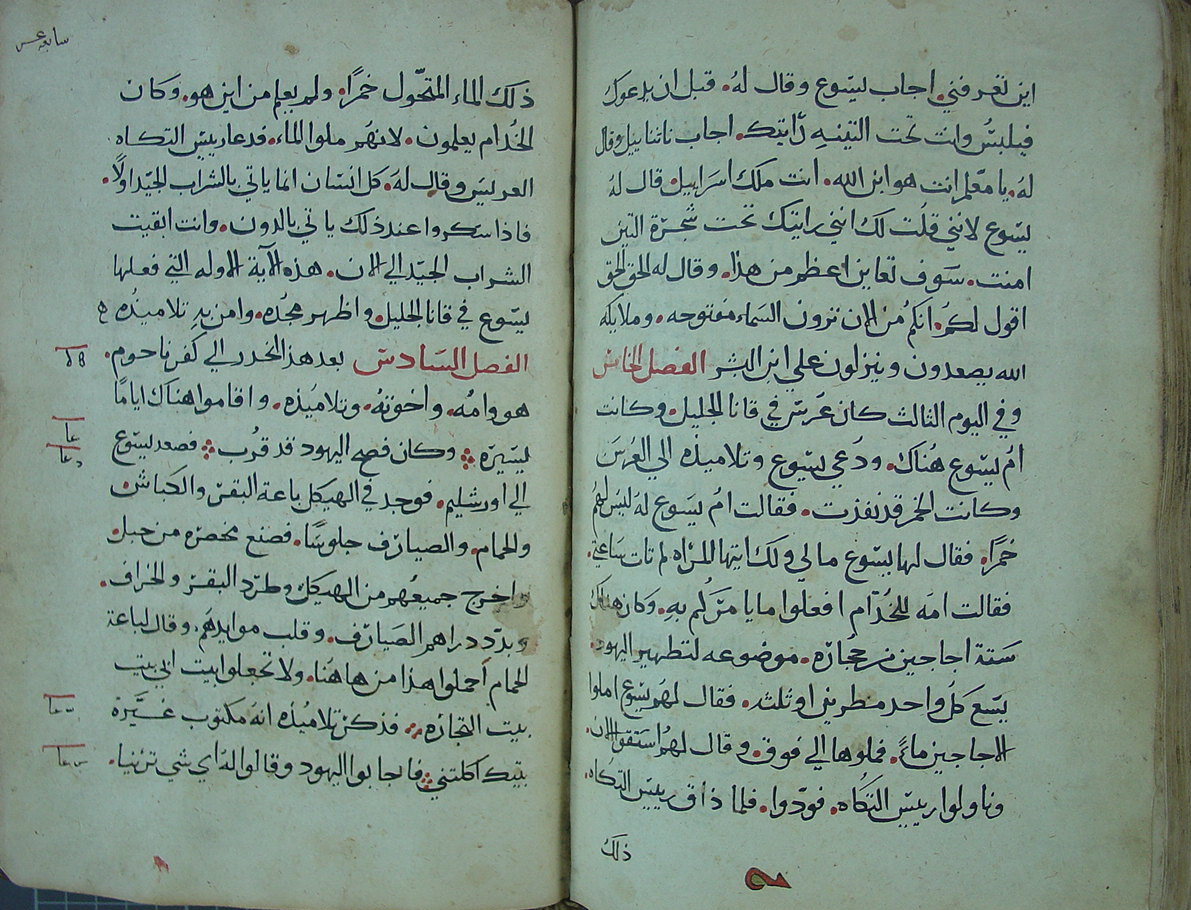 اين تعرفني. اجاب يسوع وقال لهُ. قبل ان يدعوك
فيلبسُ وانت تحت التينهِ رَايتك. اجاب ناتنابيل وقال
لهُ. يا معّلم انت هو ابن الله. انت ملك اسراييل. قال لهُ
يسوع لانني قلت لك انني رايتك تحت شجرة التين
امنت. سَوف تعاين اعظم من هذا. وقال له الحق الحق
اقول لكمُ. انكم من الان ترون السَماء مفتوحه. وملايكه
الله يصعدون وينزلون علي ابن البشر الفصل الخامس
وفي اليوم الثالث كان عُرس في قانا الجليل. وكانت
امُ يسوع هنُاك. ودُعي يسوع وتلاميذه الي العرُس
وكانت الخمر قد نفذت. فقالت امُ يسَوع لهُ ليسَ لهمُ
خمرًا. فقال لها يسوع ما لي ولك ايتها المرٰاه لم تات سَاعتي.
فقالت امهَ للخدُّام افعلوا مايامرَكُم بهِ. وكان هناك
سَتة اجاجين من حجُاره. موضوعه لتطهير اليهود.
يسَع كلُ واحد مطرين او ثلثه. فقال لهمَ يسوع املوا
الاجاجين ماءً. فملوها الي فوق. وقال لهمُ استقوا الان.
وناولوا رييسّ التكُاه. فودّوا. فلما ذاق رييسّ التكُاه.
ذلك
سابعه عشر
ذلك الماء المتحّول خمرًا. ولم يعلم من اين هو. وكان
الخدُام يعلمون. لانهمُ ملوا الماء. فدعا رييسّ التكاه
العريسَ وقال لهَ. كل انسَان انما ياتي بالشراب الجيّد اولًا.
فاذا سكروا عند ذلك ياتي بالدون. وانت ابقيت
الشراب الجيّد الي الان. هذه الآية الاوله التي فعلها
يسّوع في قانا الجليل. واظهر مجدُه. وامن بهِ تلاميذُه
الفصل السَادسَ بعد هذا انحدر الي كفرناحوم.
هو وامُه. واخوتهُ. وتلاميُذه. واقاموا هناك ايامًا
يسّيره وكان فصح اليهود قد قرُب فصعد يسّوع
الي اورشليم. فوجد في الهيكل باعة البقرَ والكباش
والحمام. والصيارف جلوسًا. فصنع مخصره من حبل.
واخرج جميعُهم من الهيكل وطرّد البقرَ والخراف.
وبدّد دراهم الصَيارف. وقلب موايدهمَ. وقال لباعة
الحمام احملوا هذا من هاهُنا. ولا تجعلوا بيت ابي بيت
بيت التجاره. فذكرَ تلاميُذه انهَ مكتوب غيَرة
بيتك اكلتني فاجابوا اليهود وقالوا لهُ اي شي ترينا.